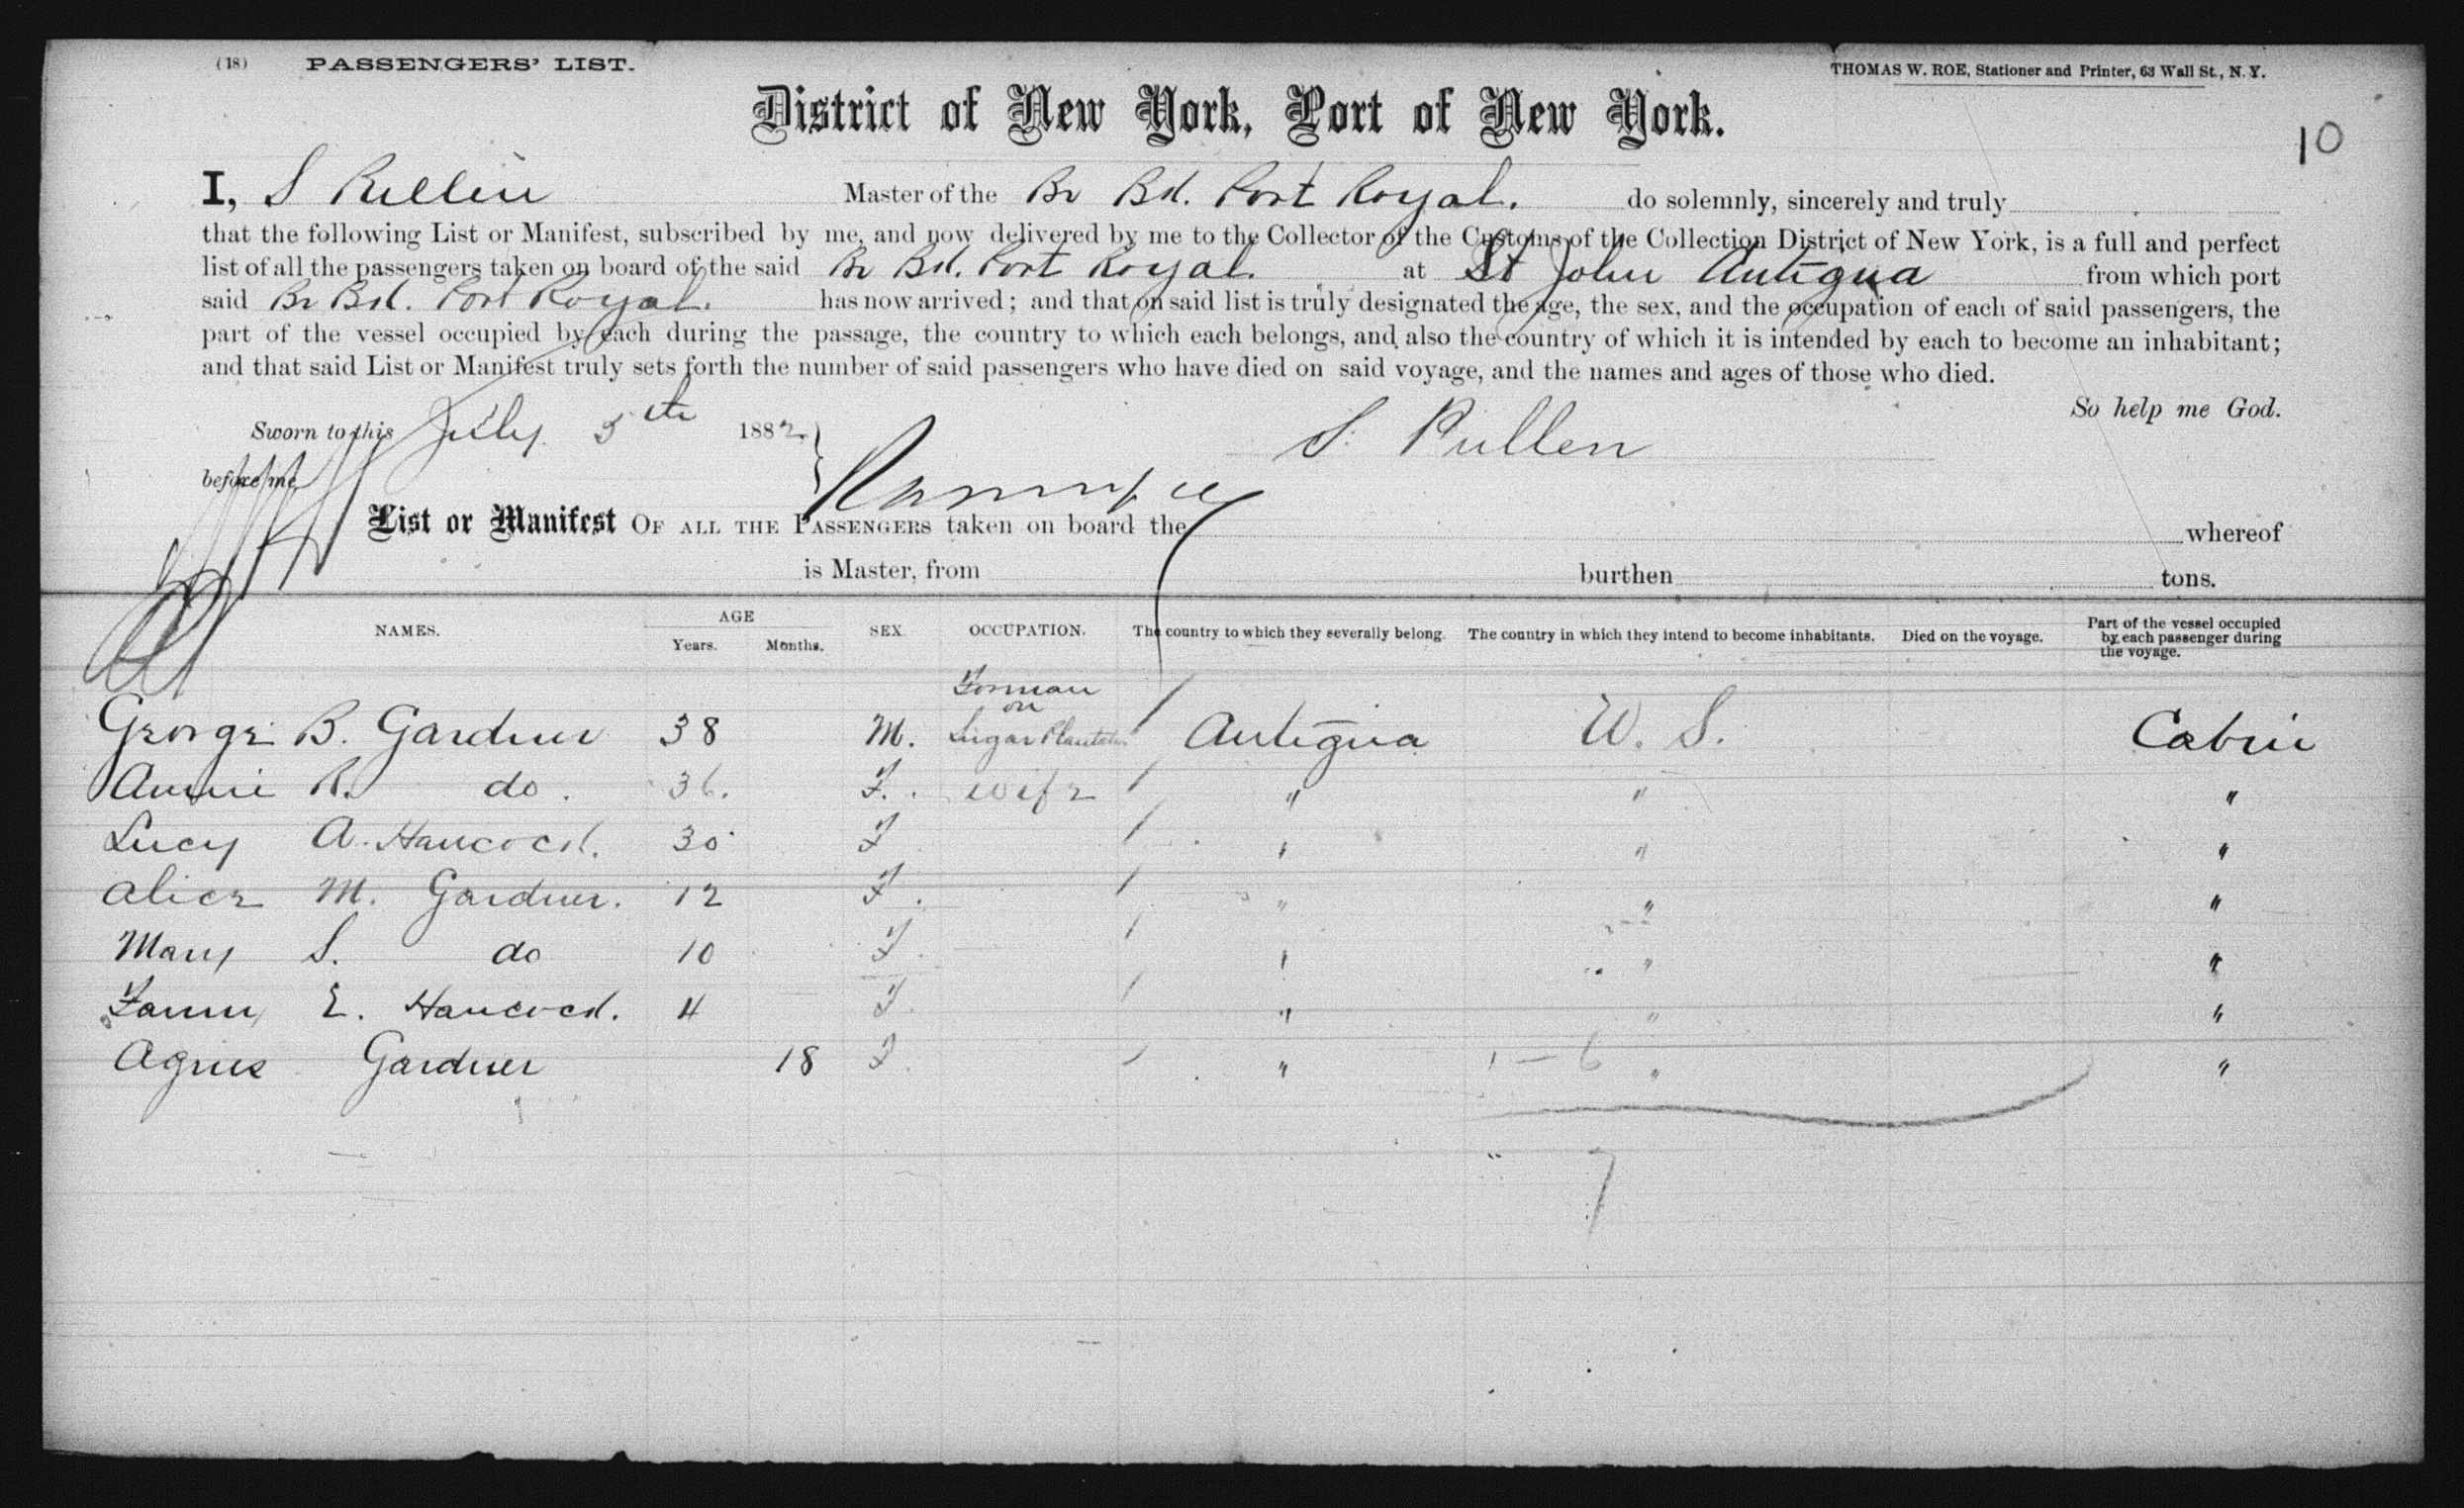 (18) PASSENGERS' LIST.
THOMAS W. ROE, Stationer and Printer, 63 Wall St., N. Y.
District of New York, Port of New York.
10
I, S Pullen Master of the Br Bk. Port Royal. do solemnly, sincerely and truly
that the following List or Manifest, subscribed by me, and now delivered by me to the Collector of the Customs of the Collection District of New York, is a full and perfect
list of all the passengers taken on board of the said Br Bk. Port Royal. at St John Antigua from which port
said Br Bk. Port Royal. has now arrived; and that on said list is truly designated the age, the sex, and the occupation of each of said passengers, the
part of the vessel occupied by each during the passage, the country to which each belongs, and also the country of which it is intended by each to become an inhabitant;
and that said List or Manifest truly sets forth the number of said passengers who have died on said voyage, and the names and ages of those who died.
So help me God.
Sworn to this July 5th 1882 S. Pullen
before me
List or Manifest OF ALL THE PASSENGERS taken on board the whereof
is Master, from burthen tons.
NAMES. AGE Years. Months. SEX. OCCUPATION. The country to which they severally belong. The country in which they intend to become inhabitants. Died on the voyage. Part of the vessel occupied by each passenger during the voyage.
Forman
on
George B. Gardner 38 M. Sugar Plantation / Antigua U. S. Cabin
Annie R. do. 36. F. wife / " " "
Lucy A. Hancock. 30 F / " " "
Alice M. Gardner. 12 F. / " " "
Mary S. do 10 F. / " " "
Fanny E. Hancock. 4 F. / " " "
Agnes Gardner 18 F. / " 1 - 6 " "
7